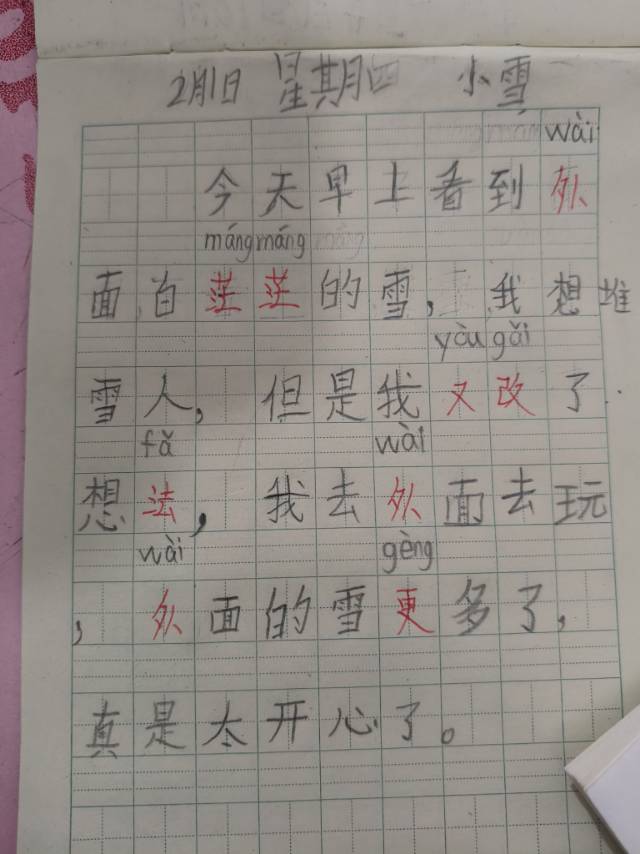 2月1日 星期四 小雪
wài
今天早上看到外
máng máng máng
面白茫茫的雪，我想堆
yòu gǎi
雪人，但是我又改了
fǎ wài
想法，我去外面去玩
wài gèng
，外面的雪更多了，
真是太开心了。